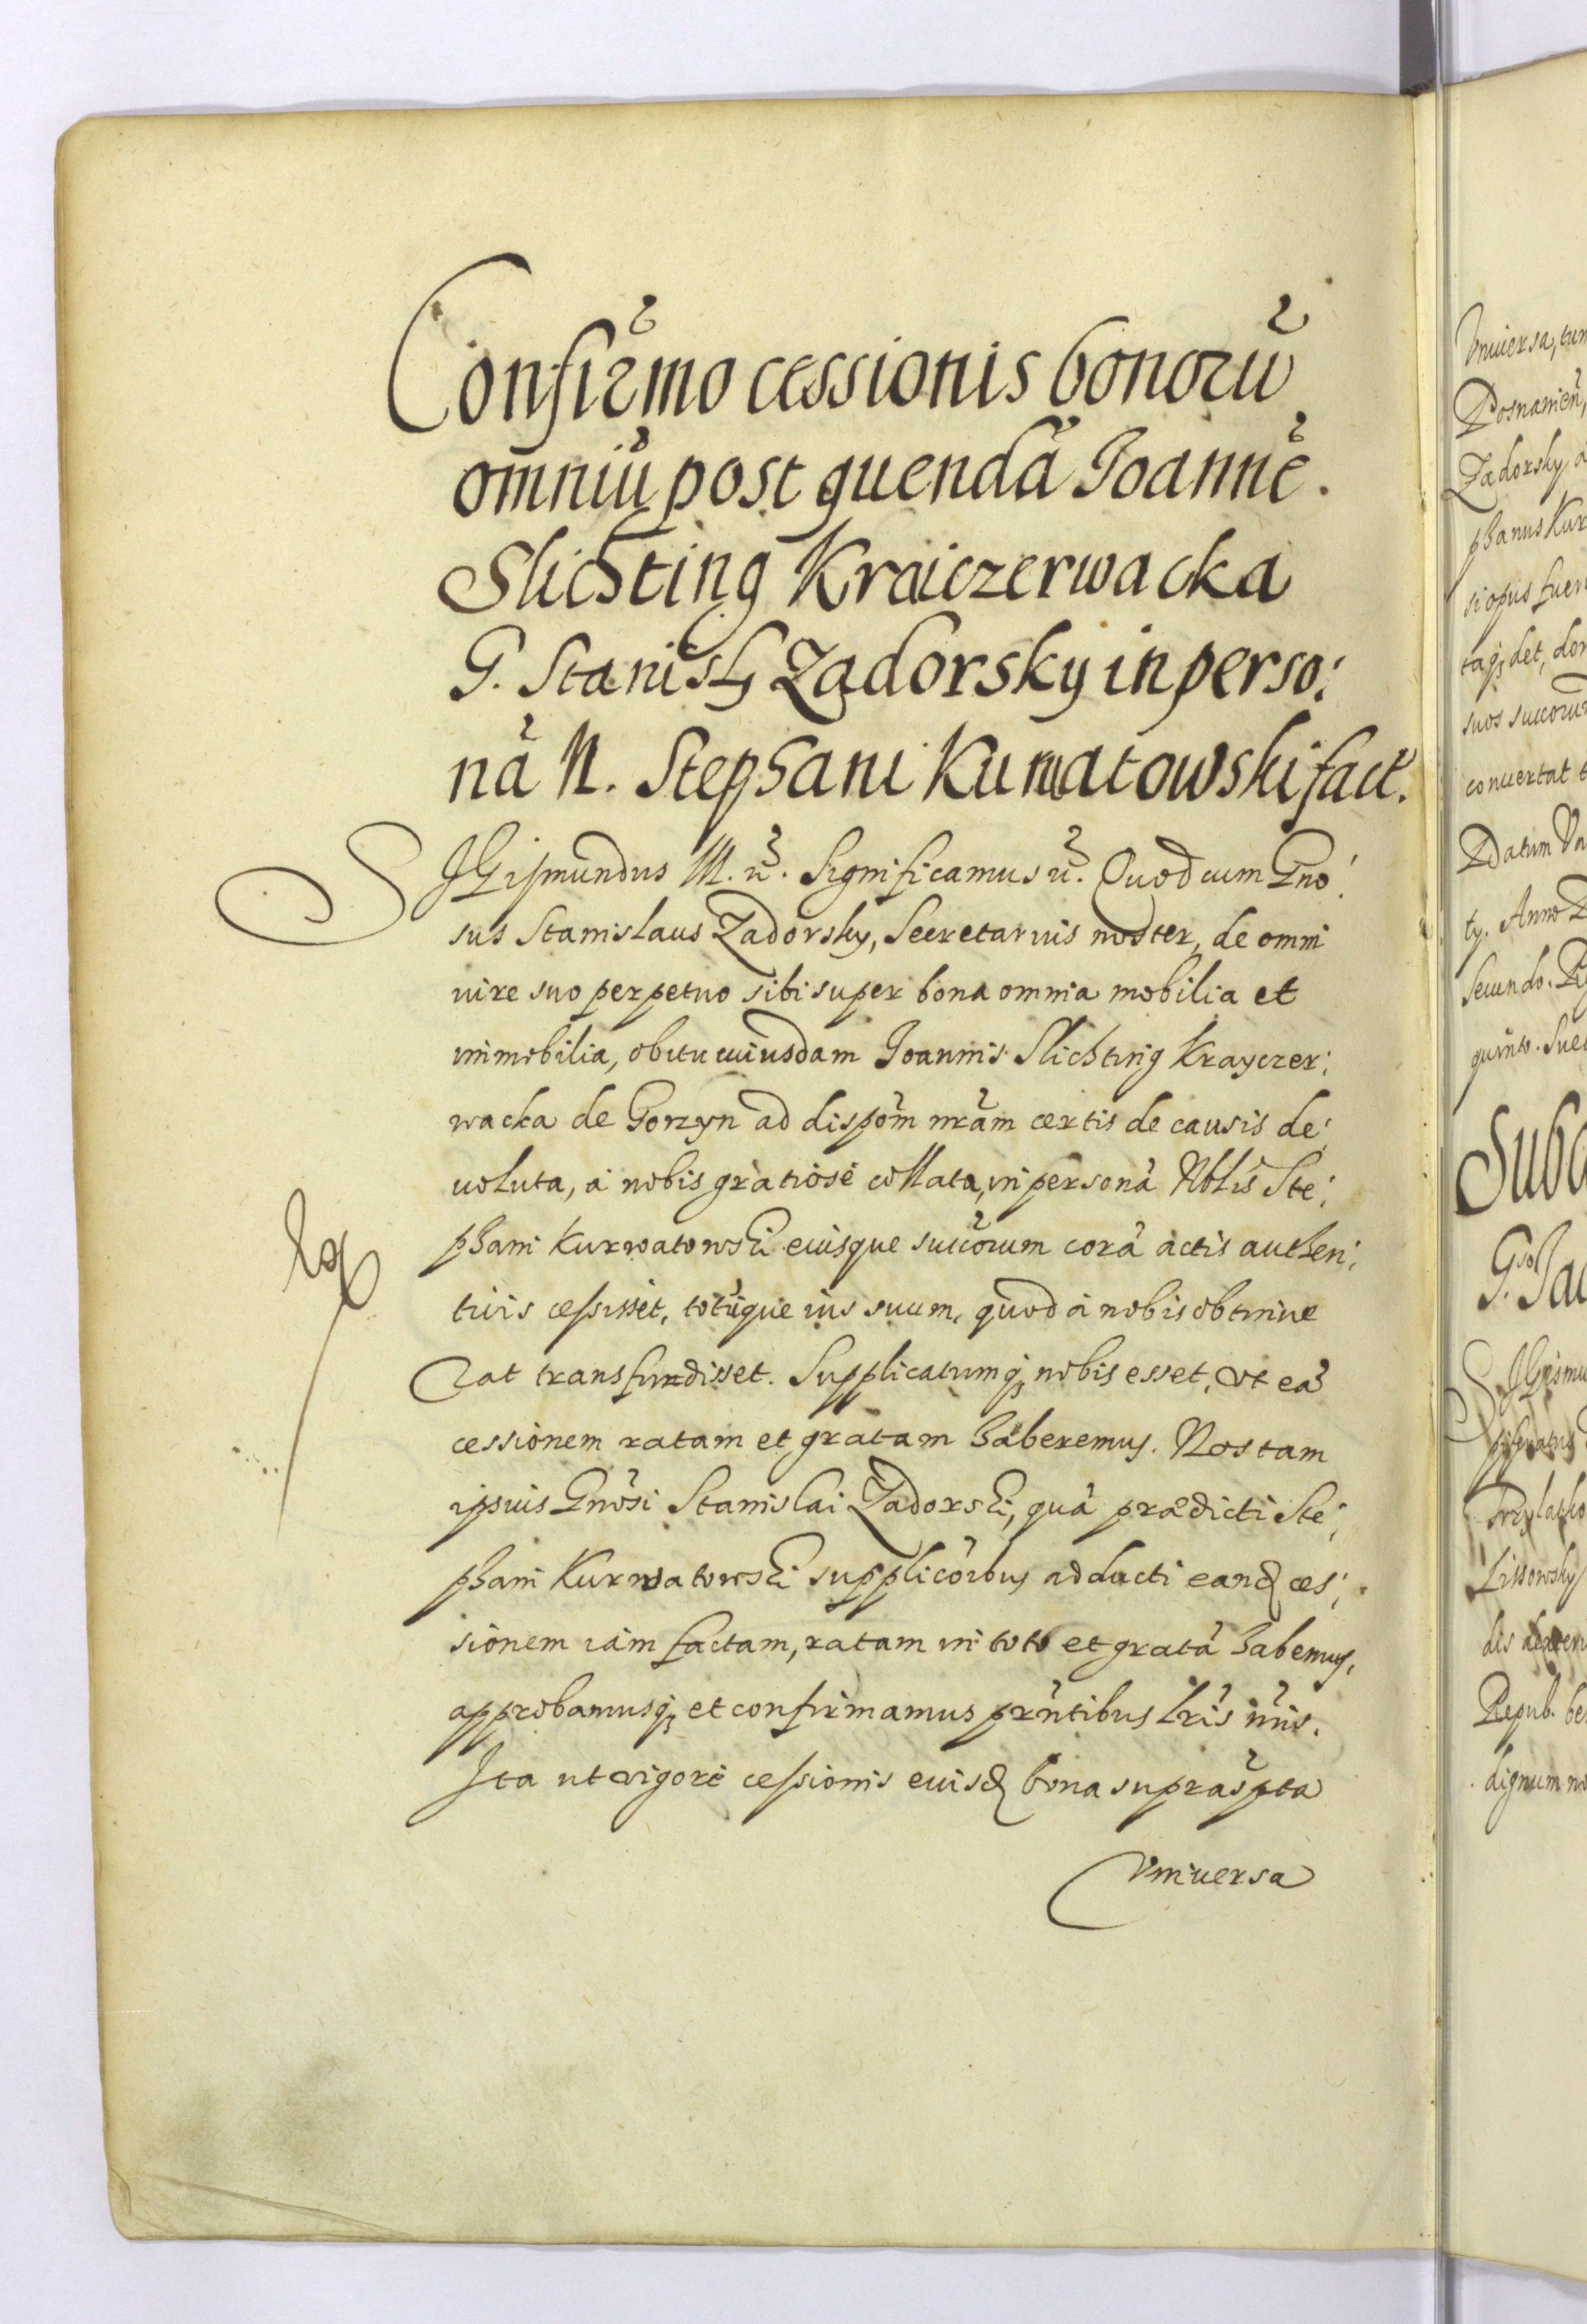 Confir̃mo cessionis bonorũ
omniũ post quendã Joannẽ.
Slichting Kraiczerwacka
G. Stanisły Zadorsky in perso:
nã N. Stephani Kurwatowski fact.
SJGismundus M. ñ. Significamus ñ. Quod cum Gno:
sus Stanislaus Zadorsky, Secretarius noster, de omni
iure suo perpetuo sibi super bona omnia mobilia et
immobilia, obitu cuiusdam Joannis Slichting Krayczer:
wacka de Gorzyn ad dispõm nrãm certis de causis de:
uoluta, a nobis gratiose collata, in personã Nobĩlis Ste:
phani Kurwatowski eiusque succõrum corã actis authen:
ticis cessisset, totũque ius suum, quod a nobis obtinue
rat transfundisset. Supplicatumq; nobis esset, vt eã
cessionem ratam et gratam haberemus. Nos tam
ipsius Gnõsi Stanislai Zadorski, quã prædicti Ste:
phani Kurwatowski supplicõibus adducti eand ces:
sionem iam factam, ratam in toto et gratã habemus,
approbamusq; et confirmamus prñtibus lrĩs nr̃is.
Ita ut vigore cessionis eiusd bona suprasp̃ta
Vniuersa
Vniuersa, tum
Posnanieñ,
Zadorsky a
phanus Kur
si opus fuer
taq; det, don
suos succorum
conuertat
Datum Va
ty. Anno D
Secundo.
quinto. Sue
Suba
G. Jac
SJGismu
Lissowsky
Repub. be
dignum no